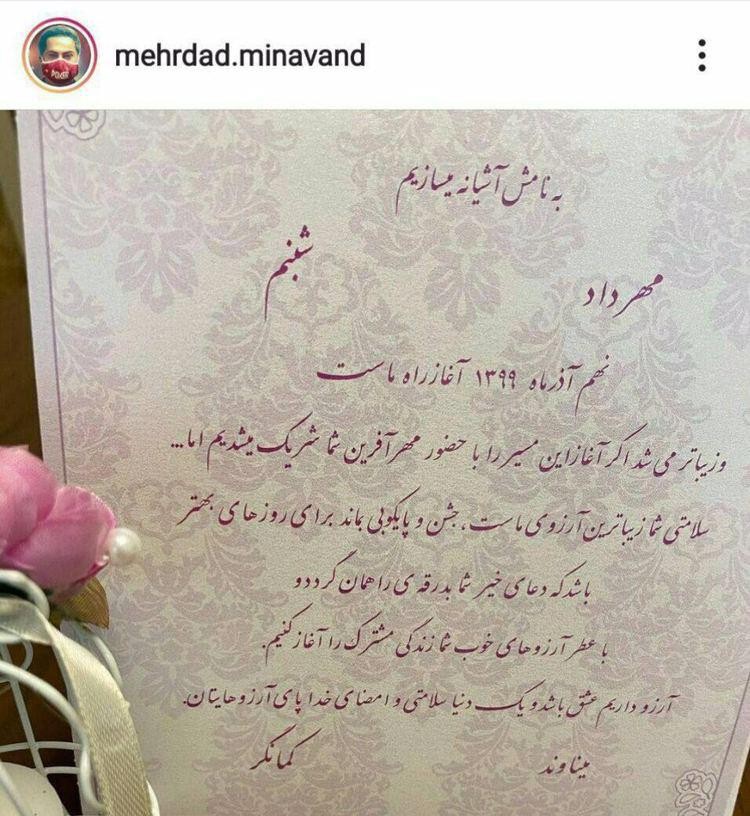 mehrdad.minavand
به نامش آشیانه میسازیم
مهرداد شبنم
نهم آذرماه ۱۳۹۹ آغاز راه ماست
وزیباتر می شد اگر آغاز این مسیر را با حضور مهرآفرین شما شریک میشدیم اما...
سلامتی شما زیباترین آرزوی ماست، جشن و پایکوبی بماند برای روزهای بهتر
باشد که دعای خیر شما بدرقه ی راهمان گردد و
با عطر آرزوهای خوب شما زندگی مشترک را آغاز کنیم.
آرزو داریم عشق باشد و یک دنیا سلامتی و امضای خدا پای آرزوهایتان.
میناوند کمانگر